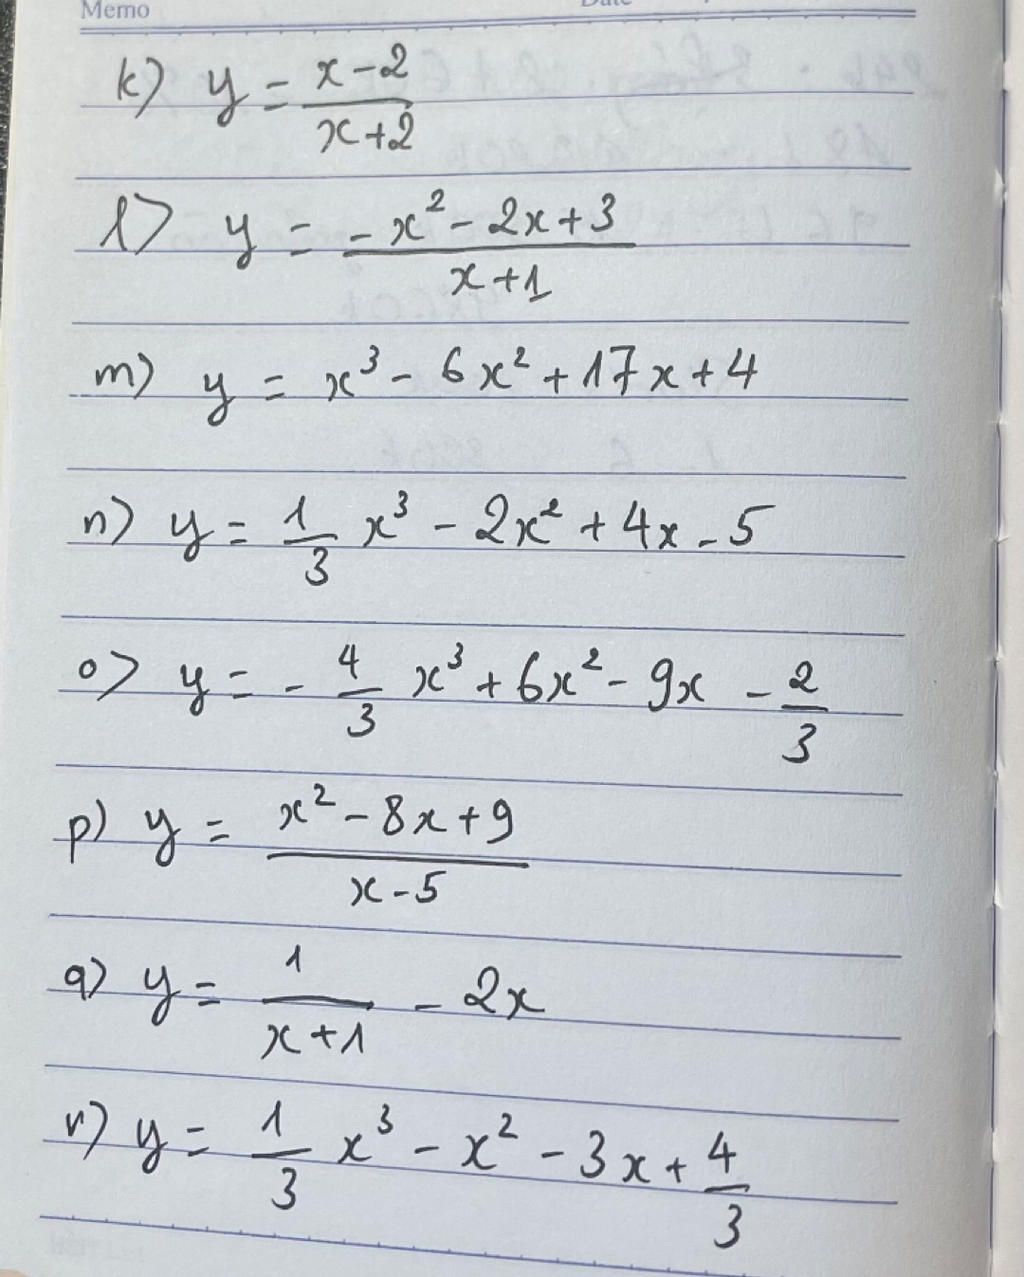 Memo
k) y = (x-2)/(x+2)
l) y = (-x² - 2x + 3)/(x+1)
m) y = x³ - 6x² + 17x + 4
n) y = 1/3 x³ - 2x² + 4x - 5
o) y = - 4/3 x³ + 6x² - 9x - 2/3
p) y = (x² - 8x + 9)/(x-5)
q) y = 1/(x+1) - 2x
r) y = 1/3 x³ - x² - 3x + 4/3